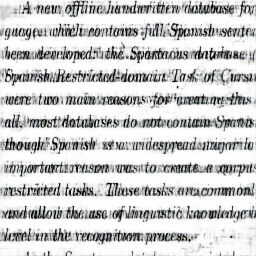 A new offline handwritten database for
guage, which contains full Spanish sente
been developed: the Spartacus database
Spanish Restricted-domain Task of Cursi
were two main reasons for creating this
all, most databases do not contain Spani
though Spanish is a widespread major la
important reason was to create a corpus
restricted tasks. These tasks are common
and allow the use of linguistic knowledge
level in the recognition process.